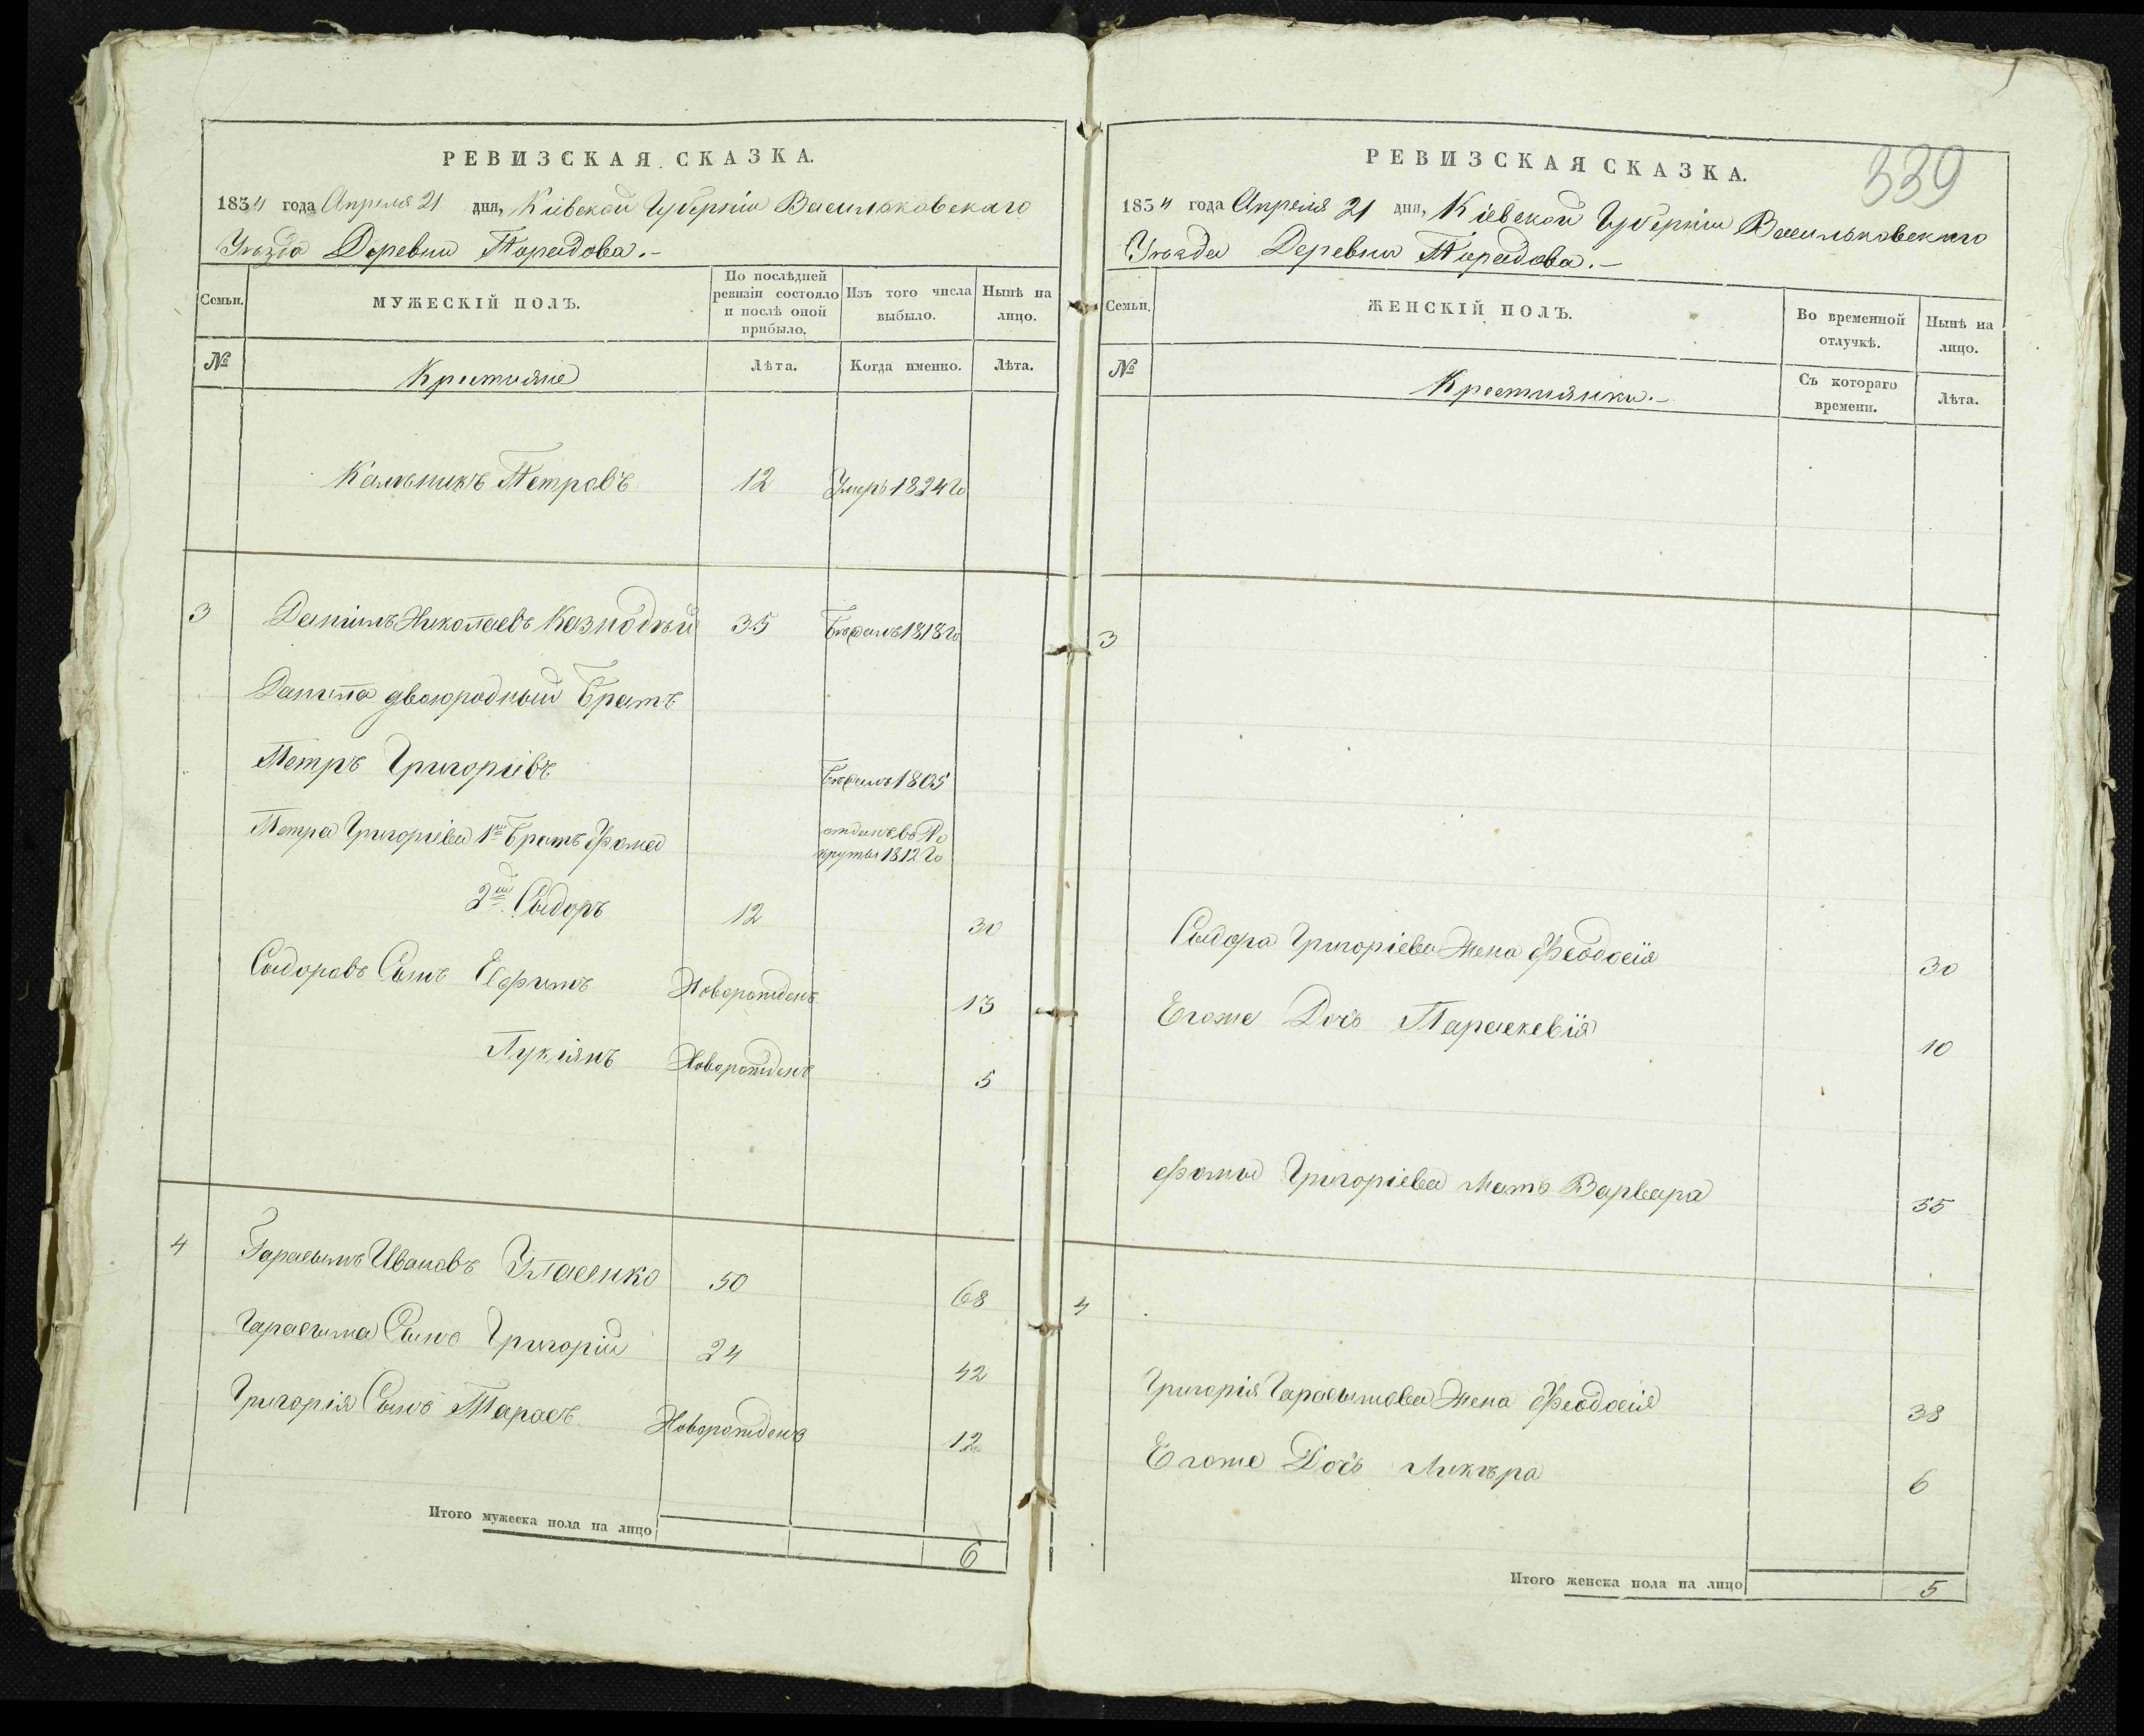 РЕВИЗСКАЯ СКАЗКА.
1834 года Апреля 21 дня, Кіевской Губерніи Васильковскаго
Уѣзда Деревни Порадова.-
Семьи.
МУЖЕСКІЙ ПОЛЪ.
По послѣдней ревизіи состояло и послѣ оной прибыло.
Изъ того числа выбыло.
Нынѣ на лицо.
№
Крестияне
Лѣта.
Когда именно.
Лѣта.
Петровъ 12 Умеръ 1824 го
3 Данiилъ Николаевъ Казнодѣй 35 Бѣжалъ 1818 го
Данила двоюродный Братъ
Петръ Григоріевъ Бѣжалъ 1805
Петра Григоріева 1й Братъ Фома отданъ въ Рекруты 1812 го
2й Сыдоръ 12 30
Сыдоровъ Сынъ Ефимъ Новорожденъ 13
Лукіянъ Новорожденъ 5
4 Гарасымъ Ивановъ Уласенко 50 68
Гарасыма Сынъ Григорій 24 42
Григорія Сынъ Тарасъ Новорожденъ 12
Итого мужеска пола на лицо 6
339
РЕВИЗСКАЯ СКАЗКА.
1834 года Апреля 21 дня, Кіевской Губерніи Васильковскаго
Уѣзда Деревни Порадова.-
Семьи.
ЖЕНСКІЙ ПОЛЪ.
Во временной отлучкѣ.
Нынѣ на лицо.
№
Крестиянки.-
Съ котораго времени.
Лѣта.
3
Сыдора Григоріева Жена Феодосія 30
Егоже Дочъ Параскевія 10
Фомы Григоріева Мать Варвара 55
4
Григорія Гарасымова Жена Феодосія 38
Егоже Дочъ Ликѣра 6
Итого женска пола на лицо 5